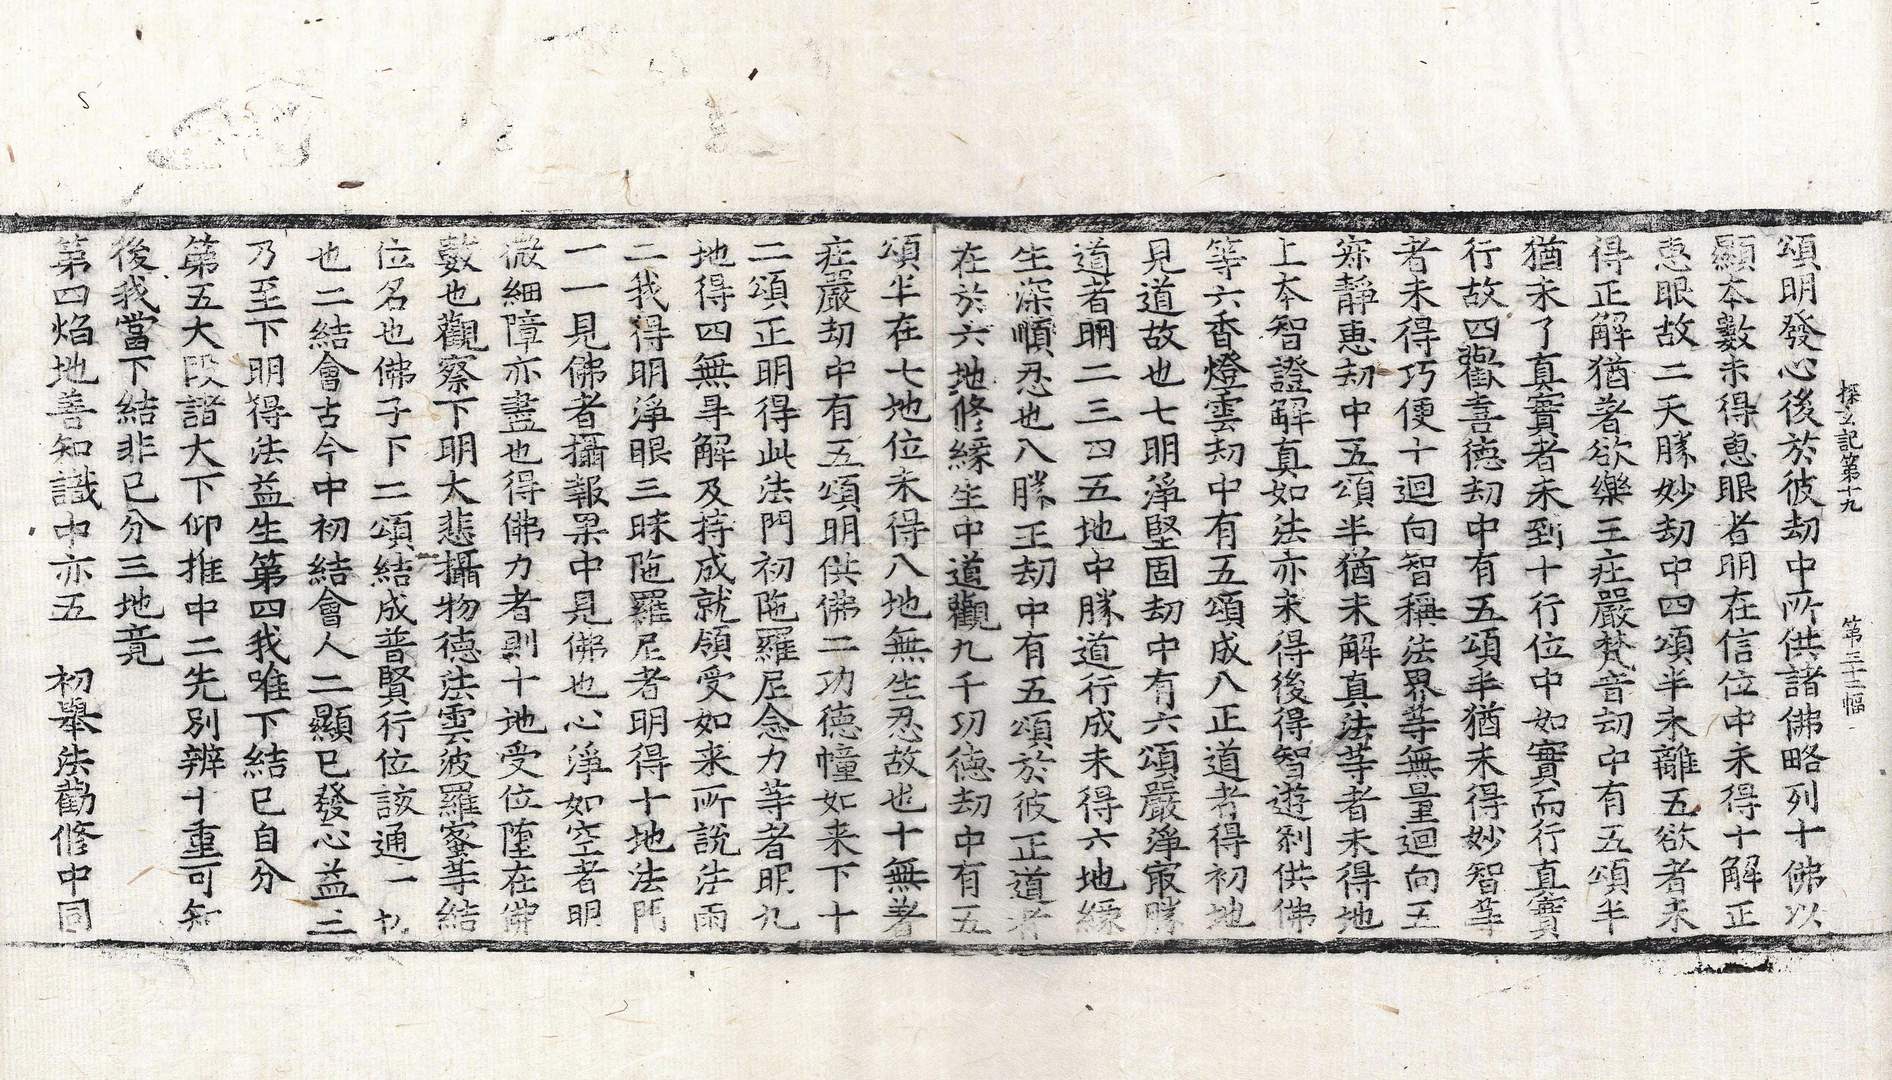 探玄記第十九　第三十三幅
頌明發心後於彼劫中所供諸佛略列十佛以
顯本數未得惠眼者明在信位中未得十解正
惠眼故二天勝妙劫中四頌半未離五欲者未
得正解猶著欲樂三莊嚴梵音劫中有五頌半
猶未了真實者未到十行位中如實而行真實
行故四歡喜德劫中有五頌半猶未得妙智等
者未得巧便十迴向智稱法界等無量迴向五
寂靜惠劫中五頌半猶未解真法等者未得地
上本智證解真如法亦未得後得智遊刹供佛
等六香燈雲劫中有五頌成八正道者得初地
見道故也七明淨堅固劫中有六頌嚴淨冣勝
道者明二三四五地中勝道行成未得六地緣
生深順忍也八勝王劫中有五頌於彼正道者
在於六地修緣生中道觀九千功德劫中有五
頌半在七地位未得八地無生忍故也十無著
莊嚴劫中有五頌明供佛二功德幢如来下十
二頌正明得此法門初陁羅尼念力等者眂九
地得四無㝵解及持成就領受如来所說法雨
二我得明淨眼三昧陁羅尼者明得十地法門
一一見佛者攝報果中見佛也心淨如空者明
微細障亦盡也得佛力者則十地受位墮在佛
數也觀察下明大悲攝物德法雲波羅蜜等結
位名也佛子下二頌結成普賢行位該通一切
也二結會古今中初結會人二顯已發心益三
乃至下明得法益生第四我唯下結已自分
第五大段諸大下仰推中二先別辨十重可知
後我當下結非已分三地竟
第四焰地善知識中亦五　初舉法勸修中同